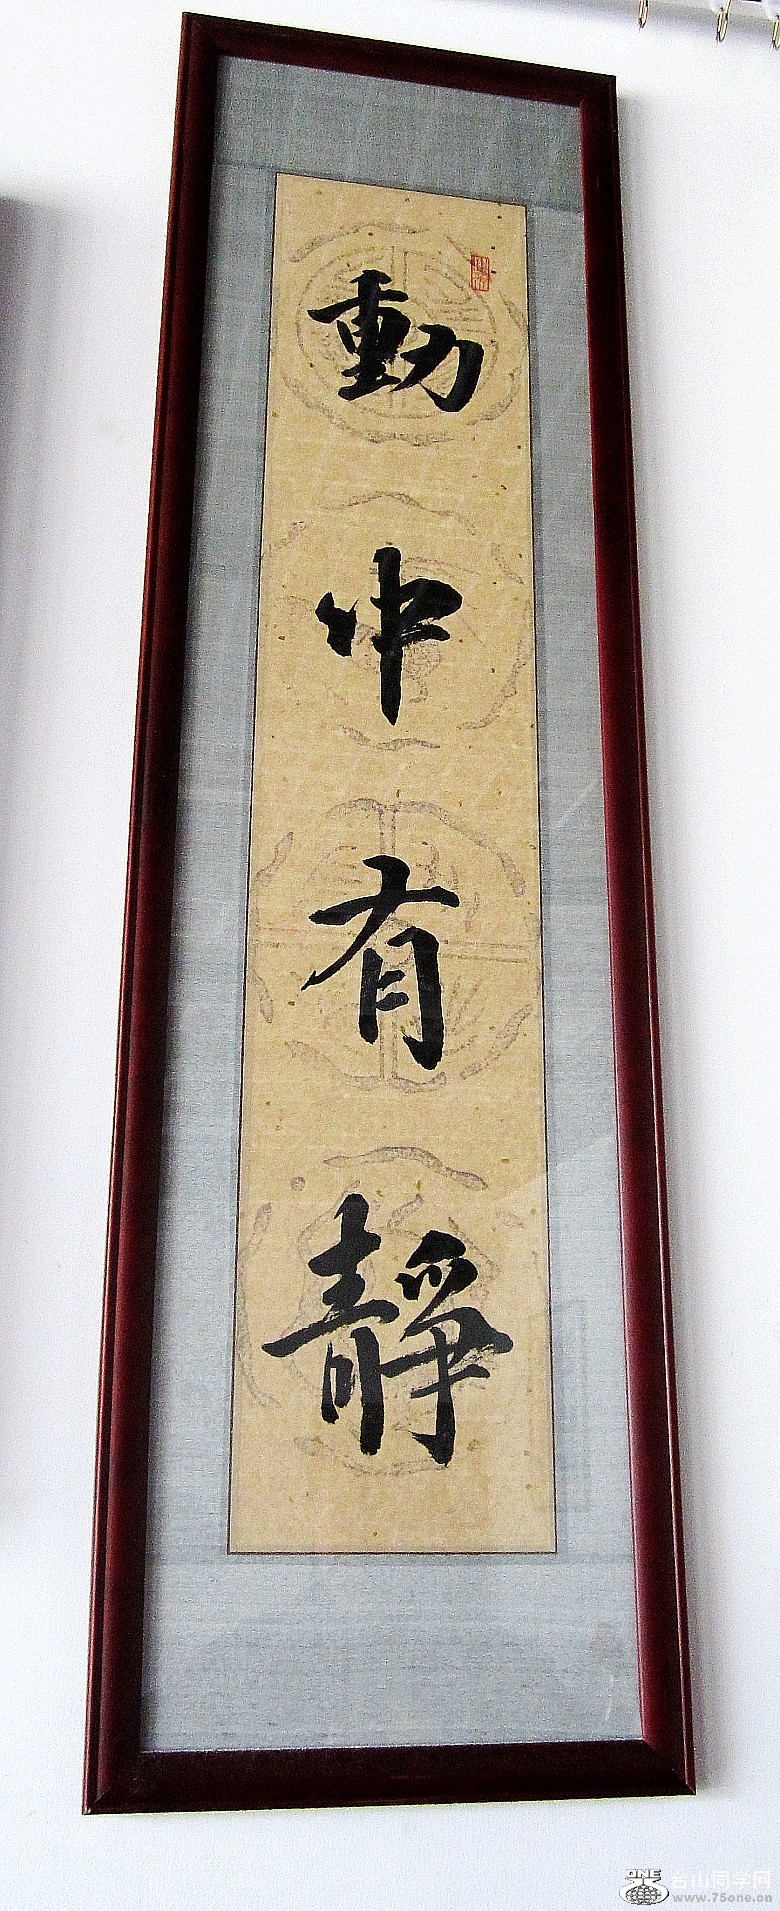 動中有靜
ONE 台山同学网
www.75one.cn